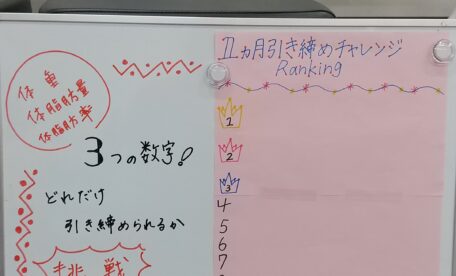 体重
体脂肪量
体脂肪率
3つの数字!
どれだけ
引き締められるか
挑戦
1ヵ月引き締めチャレンジ
Ranking
1
2
3
4
5
6
7